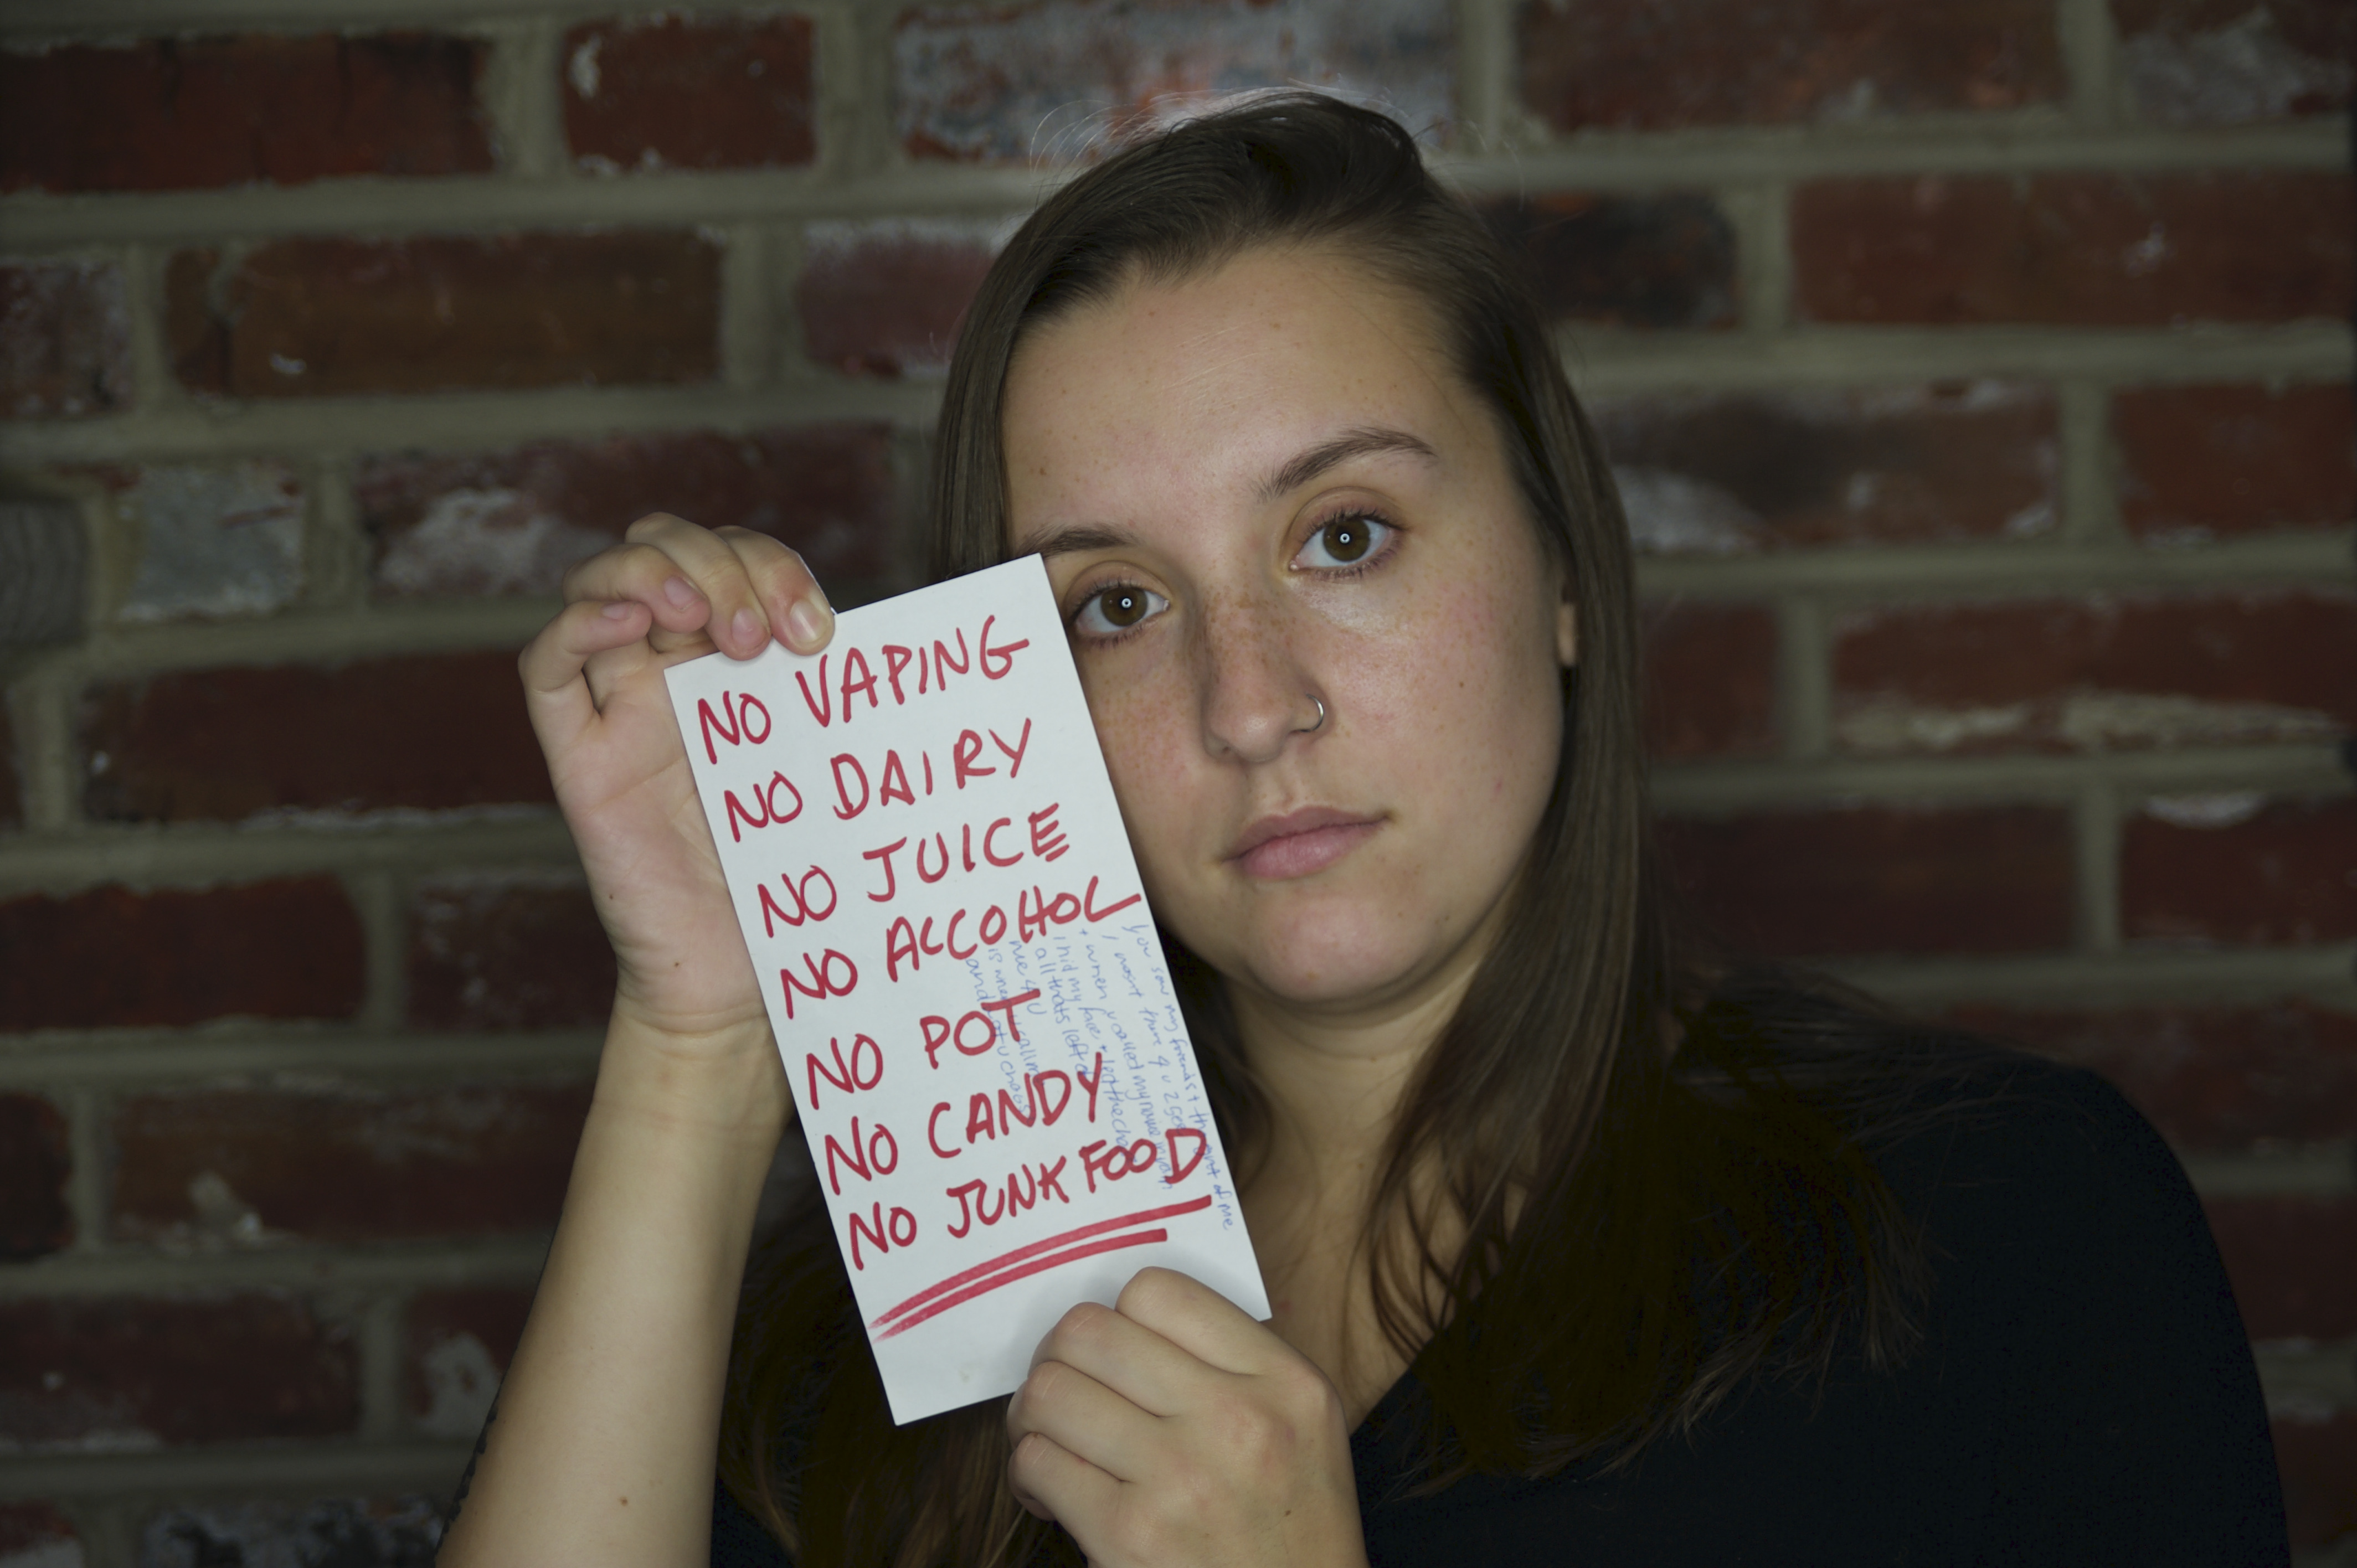 NO VAPING
NO DAIRY
NO JUICE
NO ALCOHOL
NO POT
NO CANDY
NO JUNK FOOD
you saw my friends + thought of me
I wasn't there 4 u 2 see
+ when u called my name
I hid my face + let the
all thats left of
me 4 u
is
and